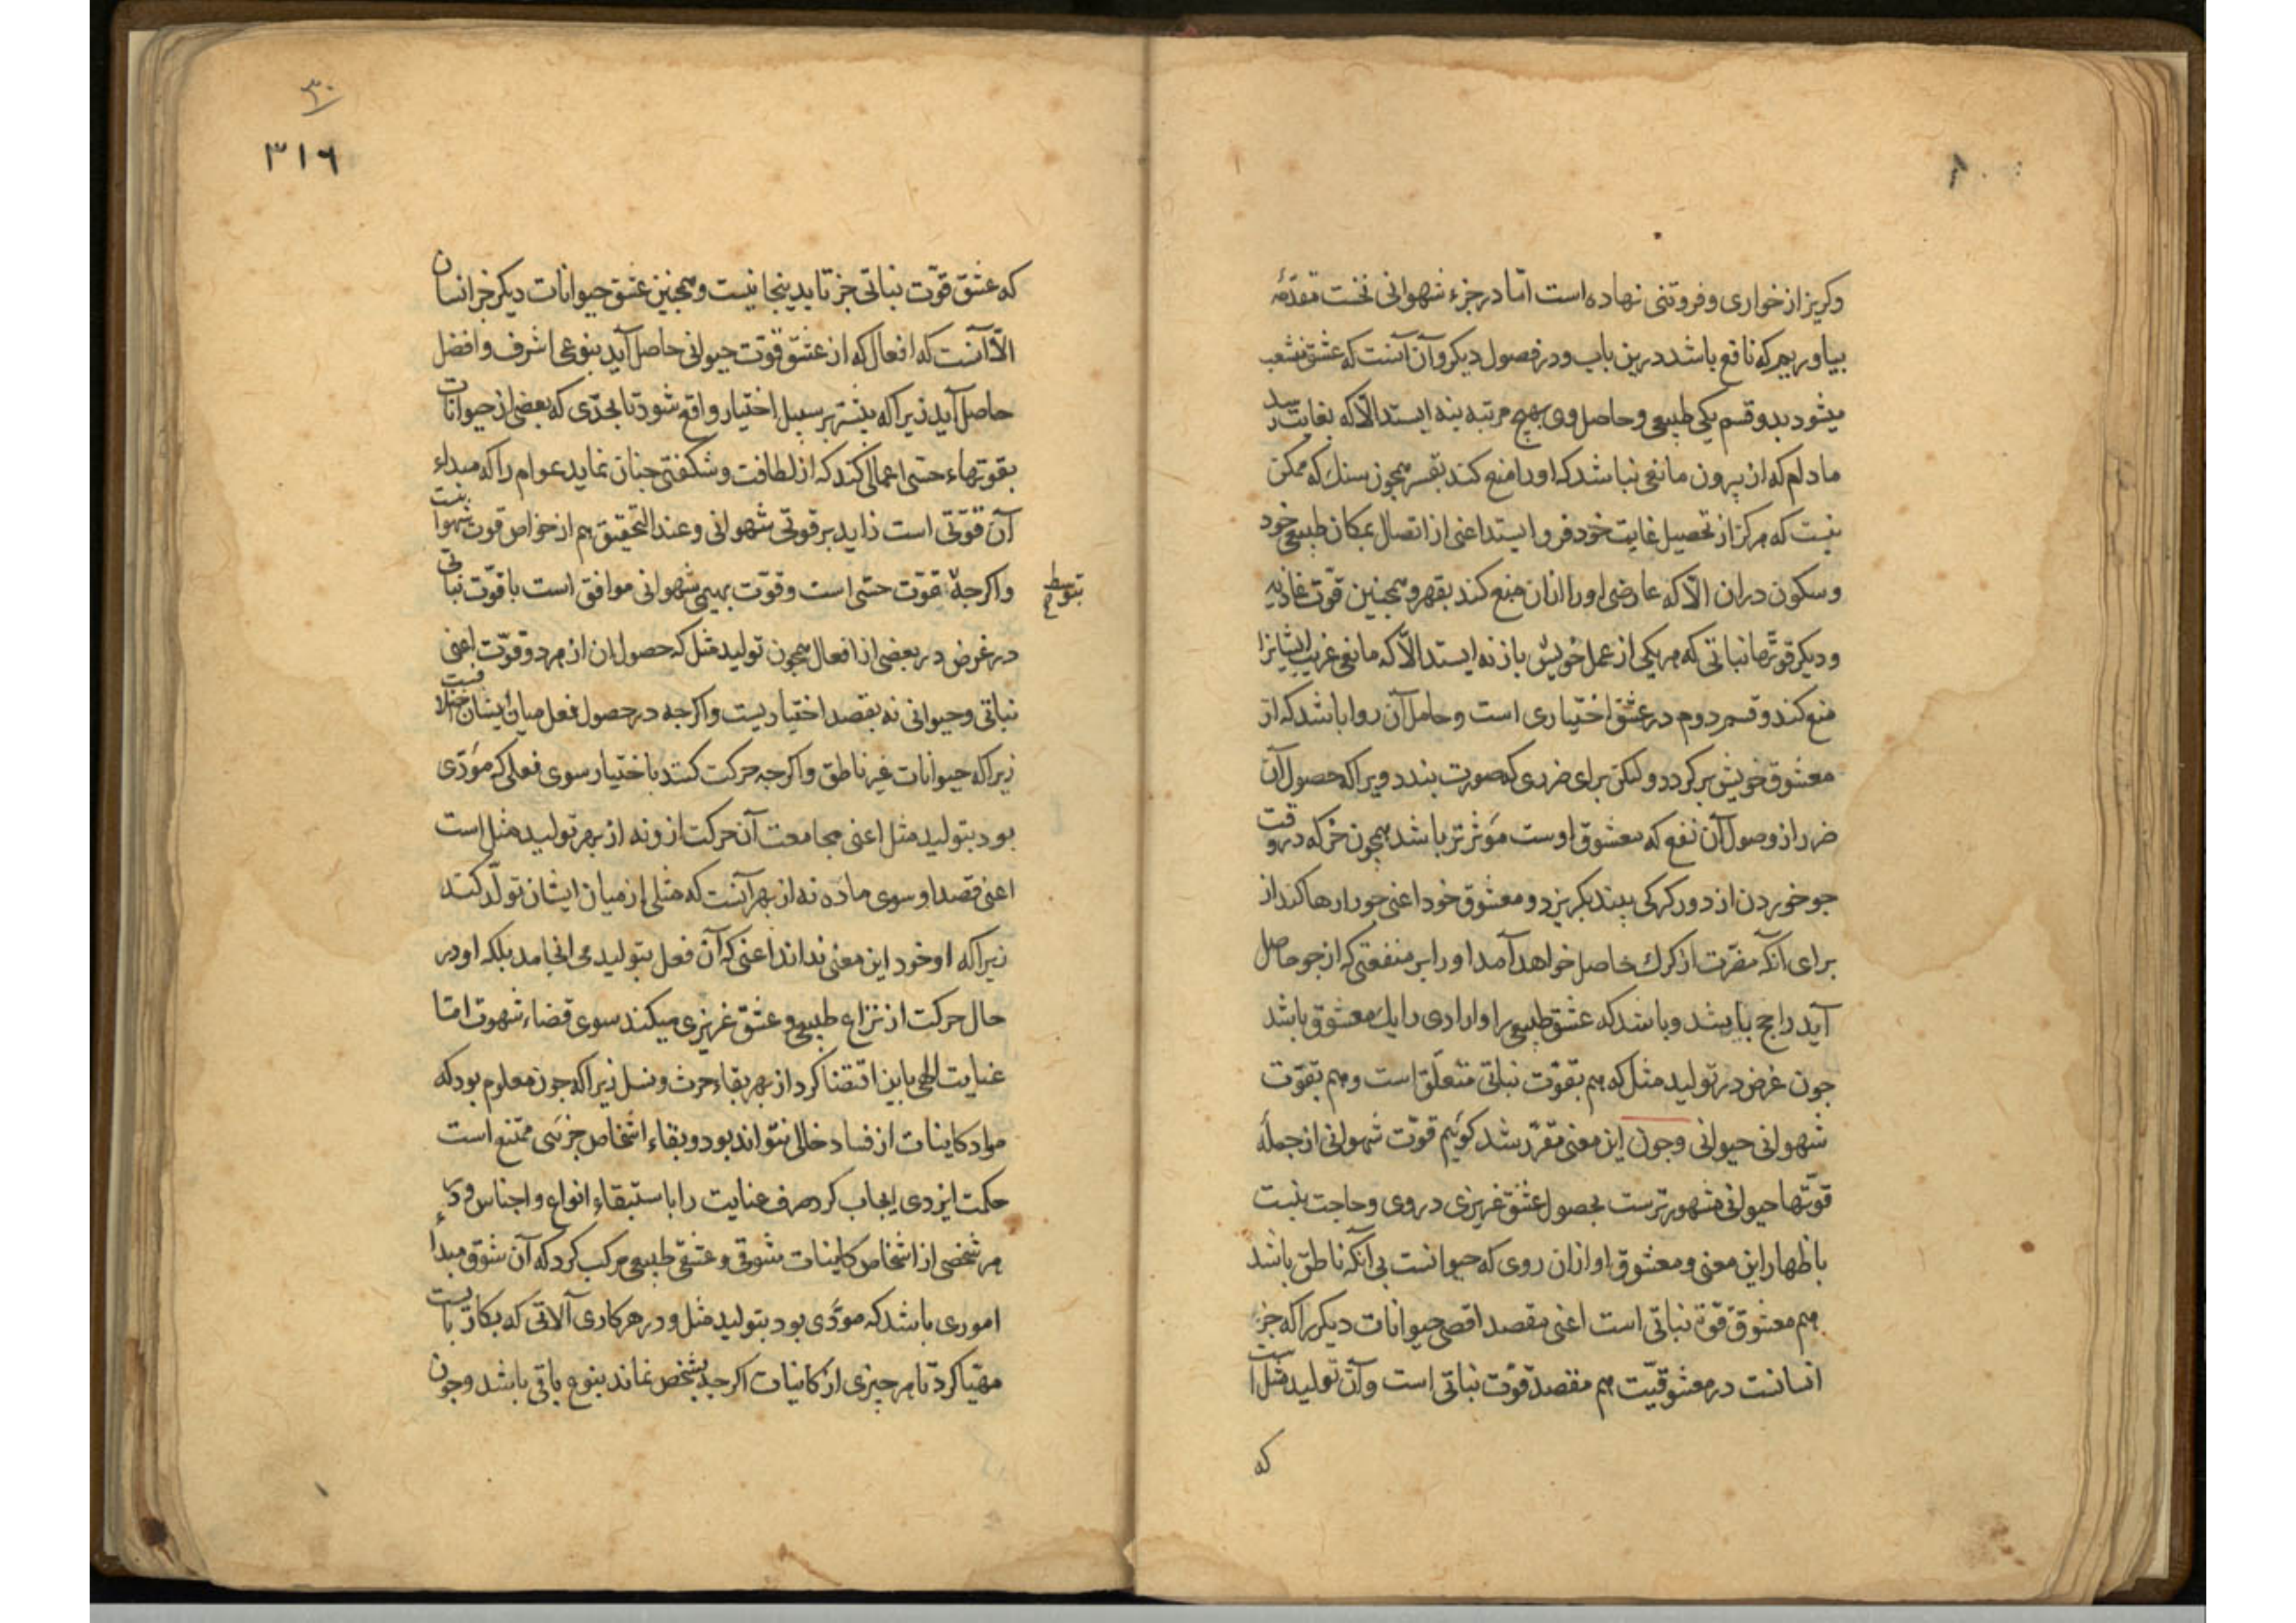 وکریز از خواری و فروتنی نهاده است امّا در جزء شهوانی نخست مقدّمهٔ
بیاوریم که نافع باشد درین باب و در فصول دیکر و آن آنست که عشق منشعب
میشود بدو قسم یکی طبیعی و حاصل وی بهیچ مرتبه بنه ایستد الّا که بغایت رسد
مادام که از بیرون مانعی نباشد که اورا منع کند بقسر همچون سنک که ممکن
نیست که هرکز از تحصیل غایت خود فرو ایستد اعنی از اتصال بمکان طبیعی خود
وسکون دران الّا که عارضی اورا ازان منع کند بقهر و همچنین قوّت غاذیه
ودیکر قوّتها نباتی که هر یکی از عمل خویش باز نه ایستد الّا که مانعی غریب ایشانرا
منع کند و قسم دوم در عشق اختیاری است و حامل آن روا باشد که از
معشوق خویش برکردد ولیکن برای ضرری که صورت بندد ویرا که حصول آن
ضرر از وصول آن نفع که معشوق اوست مؤثرتر باشد همچون خر که در وقت
جو خوردن از دور کرکی بیند بکریزد و معشوق خود اعنی جو را رها کند از
برای آنکه مضرّت از کرك حاصل خواهد آمد اورا بر منفعتی که از جو حاصل
آید راجح باشد و باشد که عشق طبیعی را و ارادی را یك معشوق باشد
جون غرض در تولید مثل که هم بقوّت نباتی متعلّق است و هم بقوّت
شهوانی حیوانی وجون این معنی مقرّر شد کوئیم قوّت شهوانی از جملهٔ
قوّتها حیوانی مشهورترست بحصول عشق غریزی در وی و حاجت نیست
باظهار این معنی و معشوق او ازان روی که حیوانست بی آنکه ناطق باشد
هم معشوق قوّة نباتی است اعنی مقصد اقصی حیوانات دیکر را که جز
انسانست در معشوقیّت هم مقصد قوّت نباتی است و آن تولید مثل است
که
۳۰
۳۱۶
که عشق قوّت نباتی جز تا بدینجا نیست و همچنین عشق حیوانات دیکر جز انسان
الّا آنست که افعال که از عشق قوّت حیوانی حاصل آید بنوعی اشرف و افضل
حاصل آید زیراکه بیشتر بر سبیل اختیار واقع شود تا بحدّی که بعضی از حیوانات
بقوتهاء حسّی اعمالی کند که از لطافت و شکفتی جنان نماید عوام را که مبداء
آن قوّتی است زاید بر قوتی شهوانی و عند التحقیق هم از خواص قوت شهوانیست
واکرجه قوّت حسّی است و قوّت بهیمی شهوانی موافق است با قوّت نباتی
بتوسط
در غرض در بعضی از افعال همچون تولید مثل که حصول ان از هر دو قوّت اعنی
نباتی و حیوانی نه بقصد اختیاریست و اکرجه در حصول فعل میان ایشان اختلافیست
زیراکه حیوانات غیر ناطق و اکرجه حرکت کنند باختیار سوی فعلی که مؤدّی
بود بتولید مثل اعنی مجامعت آن حرکت ازو نه از بهر تولید مثل است
اعنی قصد او سوی مادّه نه از بهر آنست که مثلی از میان ایشان تولّد کند
زیراکه او خود این معنی نداند اعنی که آن فعل بتولید می انجامد بلکه او در
حال حرکت از نزاع طبیعی و عشق غریزی میکند سوی قضاء شهوت امّا
عنایت الهی باین اقتضا کرد از بهر بقاء حرث و نسل زیراکه جون معلوم بود که
مواد کاینات از فساد خالی نتواند بود و بقاء اشخاص جزئی ممتنع است
حکمت ایزدی ایجاب کرد صرف عنایت را باستبقاء انواع و اجناس و در
هر شخصی از اشخاص کاینات شوقی و عشقی طبیعی مرکب کرد که آن شوق مبدأ
اموری باشد که مؤدّی بود بتولید مثل و در هر کاری آلاتی که بکار بایست
مهیّا کرد تا هر چیزی از کائنات اکرجه بشخص نماند بنوع باقی باشد وجون